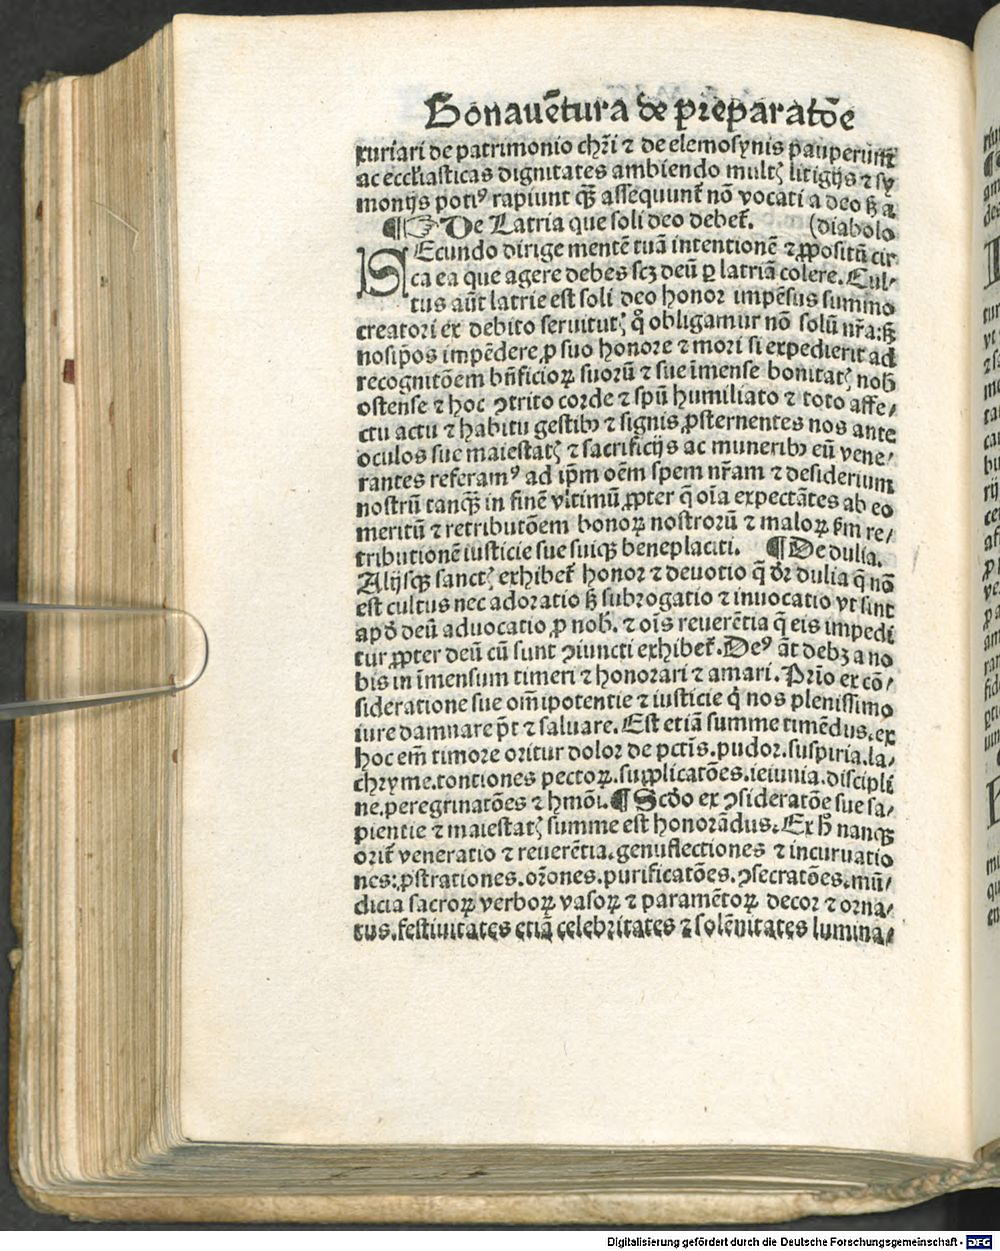 Bonauētura de preparatōe
xuriari de patrimonio chr̄i ⁊ de elemosynis pauperū /
ac eccl̄iasticas dignitates ambiendo multꝭ litigijs ⁊ sy
monijs potiꝰ rapiunt qꝫ assequunt̄ nō vocati a deo sꝫ a
¶ ☞ De Latria que soli deo debet̄. (diabolo
SEcundo dirige mentē tuā intentionē ⁊ ꝓpositū cir
ca ea que agere debes scꝫ deū ꝑ latriā colere. Cul-
tus aūt latrie est soli deo honor impēsus summo
creatori ex debito seruitutꝭ q̊ obligamur nō solū nr̄a: sꝫ
nosip̄os impēdere ꝓ suo honore ⁊ mori si expedierit ad
recognitōem bn̄ficioꝝ suoꝝ ⁊ sue īmense bonitatꝭ nob̄
ostense ⁊ hoc ꝯtrito corde ⁊ spū humiliato ⁊ toto affe-
ctu actu ⁊ habitu gestibꝫ ⁊ signis ꝓsternentes nos ante
oculos sue maiestatꝭ ⁊ sacrificijs ac muneribꝫ eū vene-
rantes referamꝰ ad ip̄m oēm spem nr̄am ⁊ desiderium
nostrū tanqꝫ in finē vltimū ꝓpter q̄ oīa expectātes ab eo
meritū ⁊ retributōem bonoꝝ nostrorū ⁊ maloꝝ ẜm re-
tributionē iusticie sue suiqꝫ beneplaciti. ¶ De dulia.
Alijsqꝫ sanctꝭ exhibet̄ honor ⁊ deuotio q̄ dr̄ dulia q̄ nō
est cultus nec adoratio sꝫ subrogatio ⁊ inuocatio vt sint
apd̄ deū aduocatio ꝓ nob̄. ⁊ oīs reuerētia q̄ eis impedi
tur ꝓpter deū cū sunt ꝯiuncti exhibet̄. Deꝰ āt debꝫ a no
bis in īmensum timeri ⁊ honorari ⁊ amari. Prīo ex cō-
sideratione sue om̄ipotentie ⁊ iusticie q̇ nos plenissimo
iure damnare pōt ⁊ saluare. Est etiā summe timēdus. ex
hoc em̄ timore oritur dolor de pctīs. pudor. suspiria. la-
chryme. tontiones pectoꝝ. supplicatōes. ieiunia. discipli
ne. peregrinatōes ⁊ hmōi. ¶ Scd̄o ex ꝯsideratōe sue sa-
pientie ⁊ maiestatꝭ summe est honorādus. Ex h̄ nanqꝫ
orit̄ veneratio ⁊ reuerētia. genuflectiones ⁊ incuruatio
nes: ꝓstrationes. or̄ones. purificatōes. ꝯsecratōes. mū-
dicia sacroꝝ verboꝝ vasoꝝ ⁊ paramētoꝝ decor ⁊ orna-
tus. festiuitates etiā celebritates ⁊ solēnitates lumina-
Digitalisierung gefördert durch die Deutsche Forschungsgemeinschaft - DFG